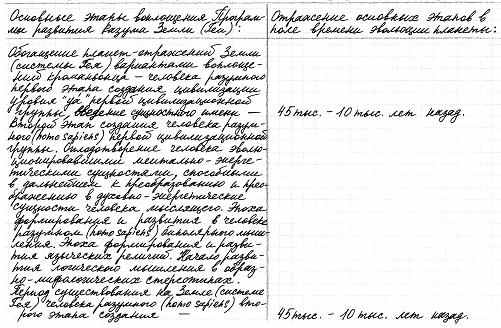 Основные этапы воплощения Програм-
мы развития Разума Земли (Геи):
Обогащение планет-отражений Земли
(системы Гея) вариантами воплоще-
ний кроманьонца - человека разумного
первого этапа создания цивилизации
уровня "да" первой цивилизационной
группы, введение сущностного имени —
второй этап создания человека разум-
ного (homo sapiens) первой цивилизационной
группы. Оплодотворение человека эволю-
ционировавшими ментально-энерге-
тическими сущностями, способными
в дальнейшем к преобразованию и прео-
бражению в духовно-энергетические
сущности человека мыслящего. Эпоха
формирования и развития в человеке
разумном (homo sapiens) биполярного мыш-
ления. Эпоха формирования и разви-
тия языческих религий. Начало разви-
тия логического мышления в образ-
но-мифологических стереотипах.
Период существования на Земле (системе
Гея) человека разумного (homo sapiens) вто-
рого этапа создания —
Отражение основных этапов в
поле времени эволюции планеты:
45 тыс. - 10 тыс. лет назад.
45 тыс. - 10 тыс. лет назад.